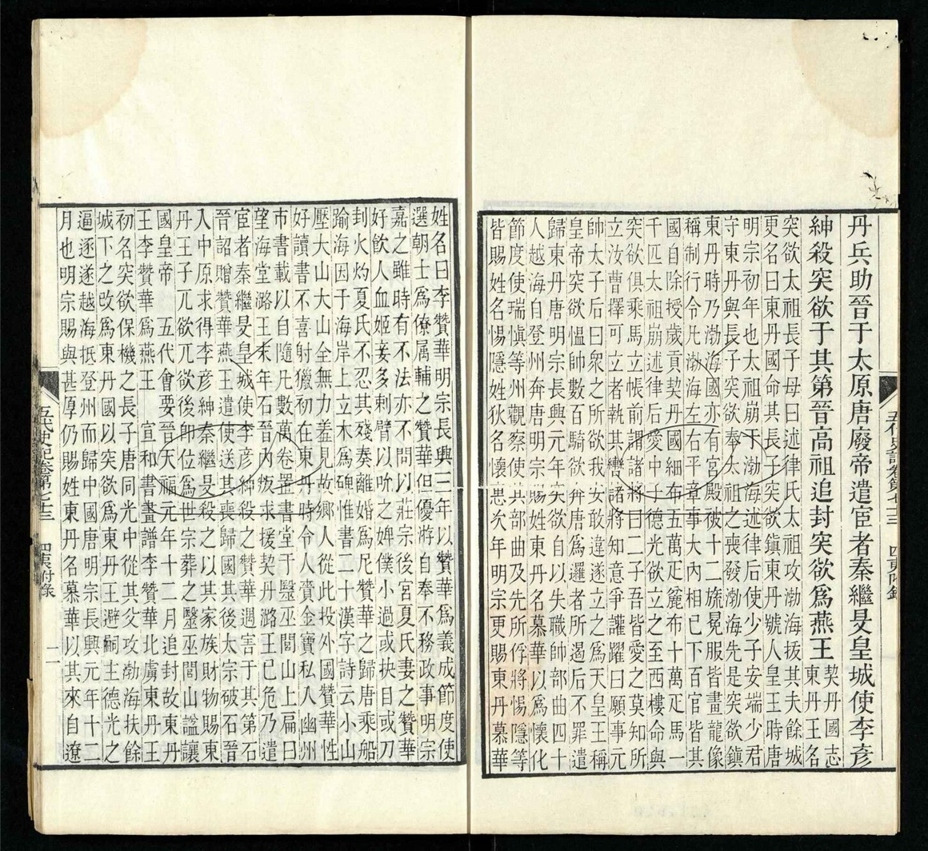 丹兵助晉于太原唐廢帝遣宦者秦繼旻皇城使李彥
紳殺突欲于其第晉高祖追封突欲為燕王
契丹國志
東丹王名
突欲太祖長子母曰述律氏太祖攻渤海拔其夫餘城
更名曰東丹國命其長子突欲鎮東丹號人皇王時唐
明宗初年也太祖崩于渤海述律后使少子安端少君
守東丹與長子突欲奉太祖之喪發渤海先是突欲鎮
東丹時乃渤海國亦有宮殿被十二旒冕服皆畫龍像
稱制行令凡渤海左右平章事大內相已下百官皆其
國自除授歲貢契丹國細布五萬疋麄布十萬疋馬一
千匹太祖崩述律后愛中子德光欲立之至西樓命與
突欲俱乘馬立帳前謂諸將曰二子吾皆愛之莫知所
立汝曹擇可立者執其轡諸將知意爭讙躍曰願事元
帥太子后曰眾之所欲我安敢違遂立之為天皇王稱
皇帝突欲慍帥數百騎欲奔唐為邏者所遏后不罪遣
歸東丹唐明宗長興元年突欲自以失職帥部曲四十
人越海自登州奔唐明宗賜姓東丹名慕華以為懷化
節度使瑞慎等州觀察使其部曲及先所俘將惕隱等
皆賜姓名惕隱姓狄名懷忠次年明宗更賜東丹慕華
五代史記卷第七十三 四夷附錄
姓名曰李贊華明宗長興三年以贊華為義成節度使
選朝士為僚属輔之贊華但優游自奉不務政事明宗
嘉之雖時有不法亦不問以莊宗後宮夏氏妻之贊華
好飲人血姬妾多刺臂以吮之婢僕小過或抉目或刀
刲火灼夏氏不忍其殘奏離婚為尼贊華之歸唐乘船
踰海因于海岸上立木為碑惟書二十漢字詩云小山
壓大山大山全無力羞見故鄉人從此投外國贊華性
好讀書不喜射獵初在東丹時令人賫金寶私入幽州
市書載以自隨凡數萬卷置書堂于毉巫閭山上扁曰
望海堂潞王末年石晉內叛求援契丹潞王已危乃遣
宦者秦繼旻皇城使李彥紳殺之贊華遇害于其第石
晉詔贈贊華燕王遣使送其喪歸國其後太宗破石晉
入中原求得李彥紳秦繼旻殺之以其家族財物賜東
丹王子兀欲兀欲後即位為世宗葬之毉巫閭山諡讓
國皇帝 五代會要晉天福元年十二月追封故東丹
王李贊華為燕王 宣和書畫譜李贊華北虜東丹王
初名突欲保機之長子唐同光中從其父攻渤海扶餘
城下之改為東丹國以突欲為東丹王避嗣主德光之
逼遂越海抵登州而歸中國唐明宗長興元年十二
月也明宗賜與甚厚仍賜姓東丹名慕華以其來自遼
五代史記卷第七十三 四夷附錄 二